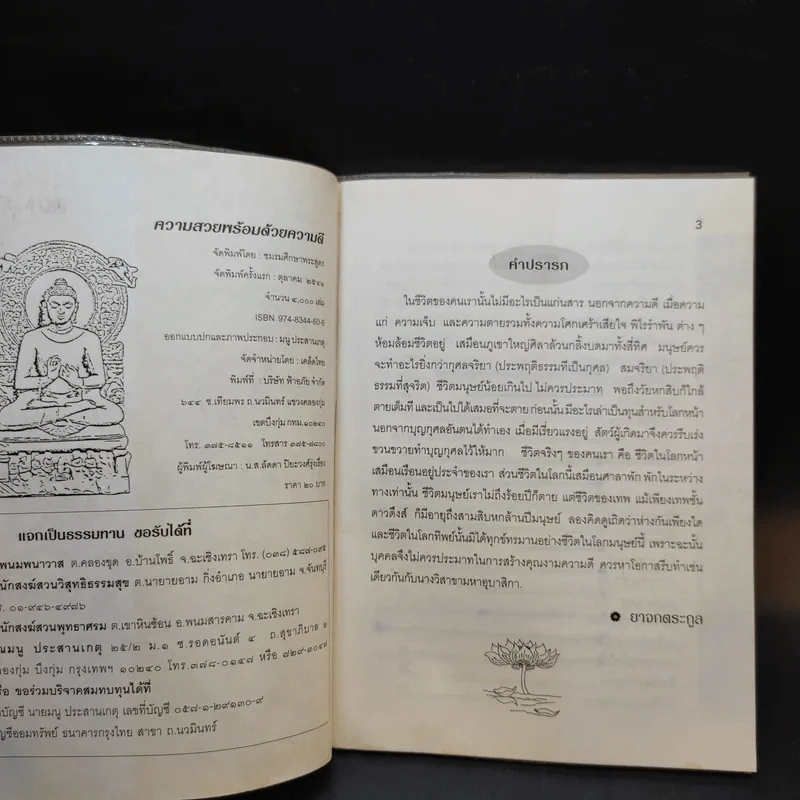 ความสวยพร้อมด้วยความดี
จัดพิมพ์โดย : ชมรมศึกษาพระสูตร
จัดพิมพ์ครั้งแรก : ตุลาคม ๒๕๔๑
จำนวน ๔,๐๐๐ เล่ม
ISBN 974-8344-60-6
ออกแบบปกและภาพประกอบ : มนู ประสานเกตุ
จัดจำหน่ายโดย : เคล็ดไทย
พิมพ์ที่ : บริษัท ฟ้าอภัย จำกัด
๖๔๔ ซ.เทียมพร ถ.นวมินทร์ แขวงคลองกุ่ม
เขตบึงกุ่ม กทม.๑๐๒๔๐
โทร. ๓๗๕-๘๕๑๑ โทรสาร ๓๗๕-๗๘๐๐
ผู้พิมพ์ผู้โฆษณา : น.ส.ลัดดา ปิยะวงศ์รุ่งเรือง
ราคา ๒๐ บาท
แจกเป็นธรรมทาน ขอรับได้ที่
พนมพนาวาส ต.คลองขุด อ.บ้านโพธิ์ จ.ฉะเชิงเทรา โทร. (๐๓๘) ๕๘๗-๐๙๕
นักสงฆ์สวนวิสุทธิธรรมสุข ต.นายายอาม กิ่งอำเภอ นายายอาม จ.จันทบุรี
ร. ๐๑-๙๔๖-๔๙๗๖
นักสงฆ์สวนพุทธาศรม ต.เขาหินซ้อน อ.พนมสารคาม จ.ฉะเชิงเทรา
ณมนู ประสานเกตุ ๒๕/๒ ม.๑ ซ.รอดอนันต์ ๔ ถ.สุขาภิบาล ๒
ลองกุ่ม บึงกุ่ม กรุงเทพฯ ๑๐๒๔๐ โทร.๓๗๘-๐๑๔๗ หรือ ๗๒๙-๓๐๔๗
รือ ขอร่วมบริจาคสมทบทุนได้ที่
บัญชี นายมนู ประสานเกตุ เลขที่บัญชี ๐๕๗-๑-๒๙๑๓๐-๙
ญชีออมทรัพย์ ธนาคารกรุงไทย สาขา ถ.นวมินทร์
3
คำปรารภ
ในชีวิตของคนเรานั้นไม่มีอะไรเป็นแก่นสาร นอกจากความดี เมื่อความ
แก่ ความเจ็บ และความตายรวมทั้งความโศกเศร้าเสียใจ พิไรรำพัน ต่าง ๆ
ห้อมล้อมชีวิตอยู่ เสมือนภูเขาใหญ่ศิลาล้วนกลิ้งบดมาทั้งสี่ทิศ มนุษย์ควร
จะทำอะไรยิ่งกว่ากุศลจริยา (ประพฤติธรรมที่เป็นกุศล) สมจริยา (ประพฤติ
ธรรมที่สุจริต) ชีวิตมนุษย์น้อยเกินไป ไม่ควรประมาท พอถึงวัยหกสิบก็ใกล้
ตายเต็มที และเป็นไปได้เสมอที่จะตาย ก่อนนั้น มีอะไรเล่าเป็นทุนสำหรับโลกหน้า
นอกจากบุญกุศลอันตนได้ทำเอง เมื่อมีเรี่ยวแรงอยู่ สัตว์ผู้เกิดมาจึงควรรีบเร่ง
ขวนขวายทำบุญกุศลไว้ให้มาก ชีวิตจริงๆ ของคนเรา คือ ชีวิตในโลกหน้า
เสมือนเรือนอยู่ประจำของเรา ส่วนชีวิตในโลกนี้เสมือนศาลาพัก พักในระหว่าง
ทางเท่านั้น ชีวิตมนุษย์เราไม่ถึงร้อยปีก็ตาย แต่ชีวิตของเทพ แม้เพียงเทพชั้น
ดาวดึงส์ ก็มีอายุถึงสามสิบหกล้านปีมนุษย์ ลองคิดดูเถิดว่าห่างกันเพียงใด
และชีวิตในโลกทิพย์นั้นมิได้ทุกข์ทรมานอย่างชีวิตในโลกมนุษย์นี้ เพราะฉะนั้น
บุคคลจึงไม่ควรประมาทในการสร้างคุณงามความดี ควรหาโอกาสรีบทำเช่น
เดียวกันกับนางวิสาขามหาอุบาสิกา.
ยาจกตระกูล